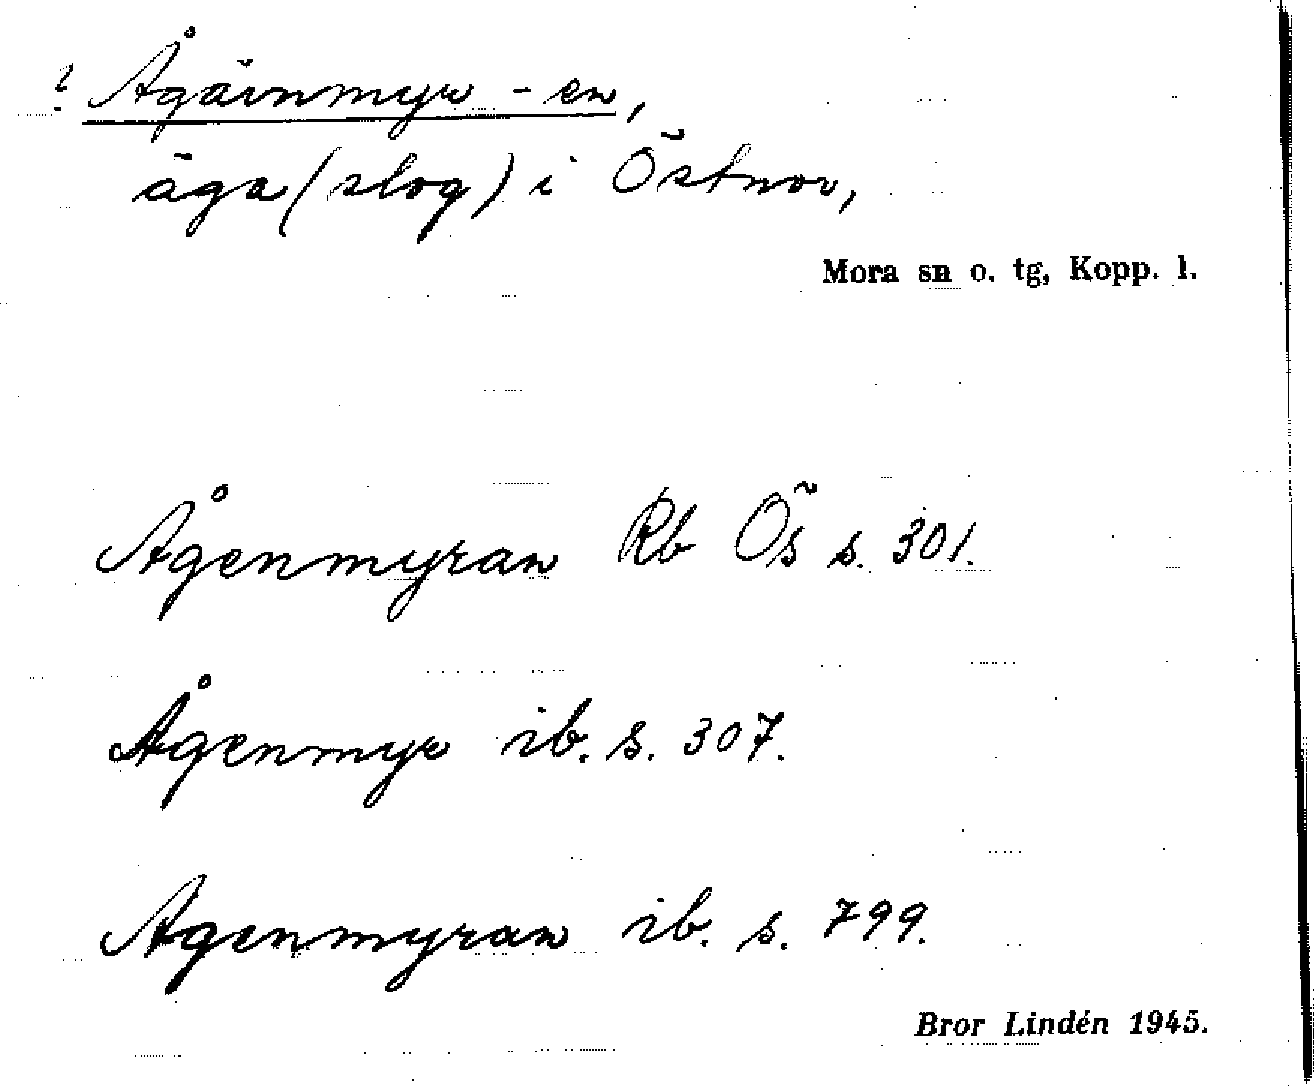 ? Ågäinmyr -en,
äga (slog) i Östnor,
Mora sn o. tg, Kopp. l.
Ågenmyran Rb Ös s. 301.
Ågenmyr ib. s. 307.
Agenmyran ib. s. 799.
Bror Lindén 1945.